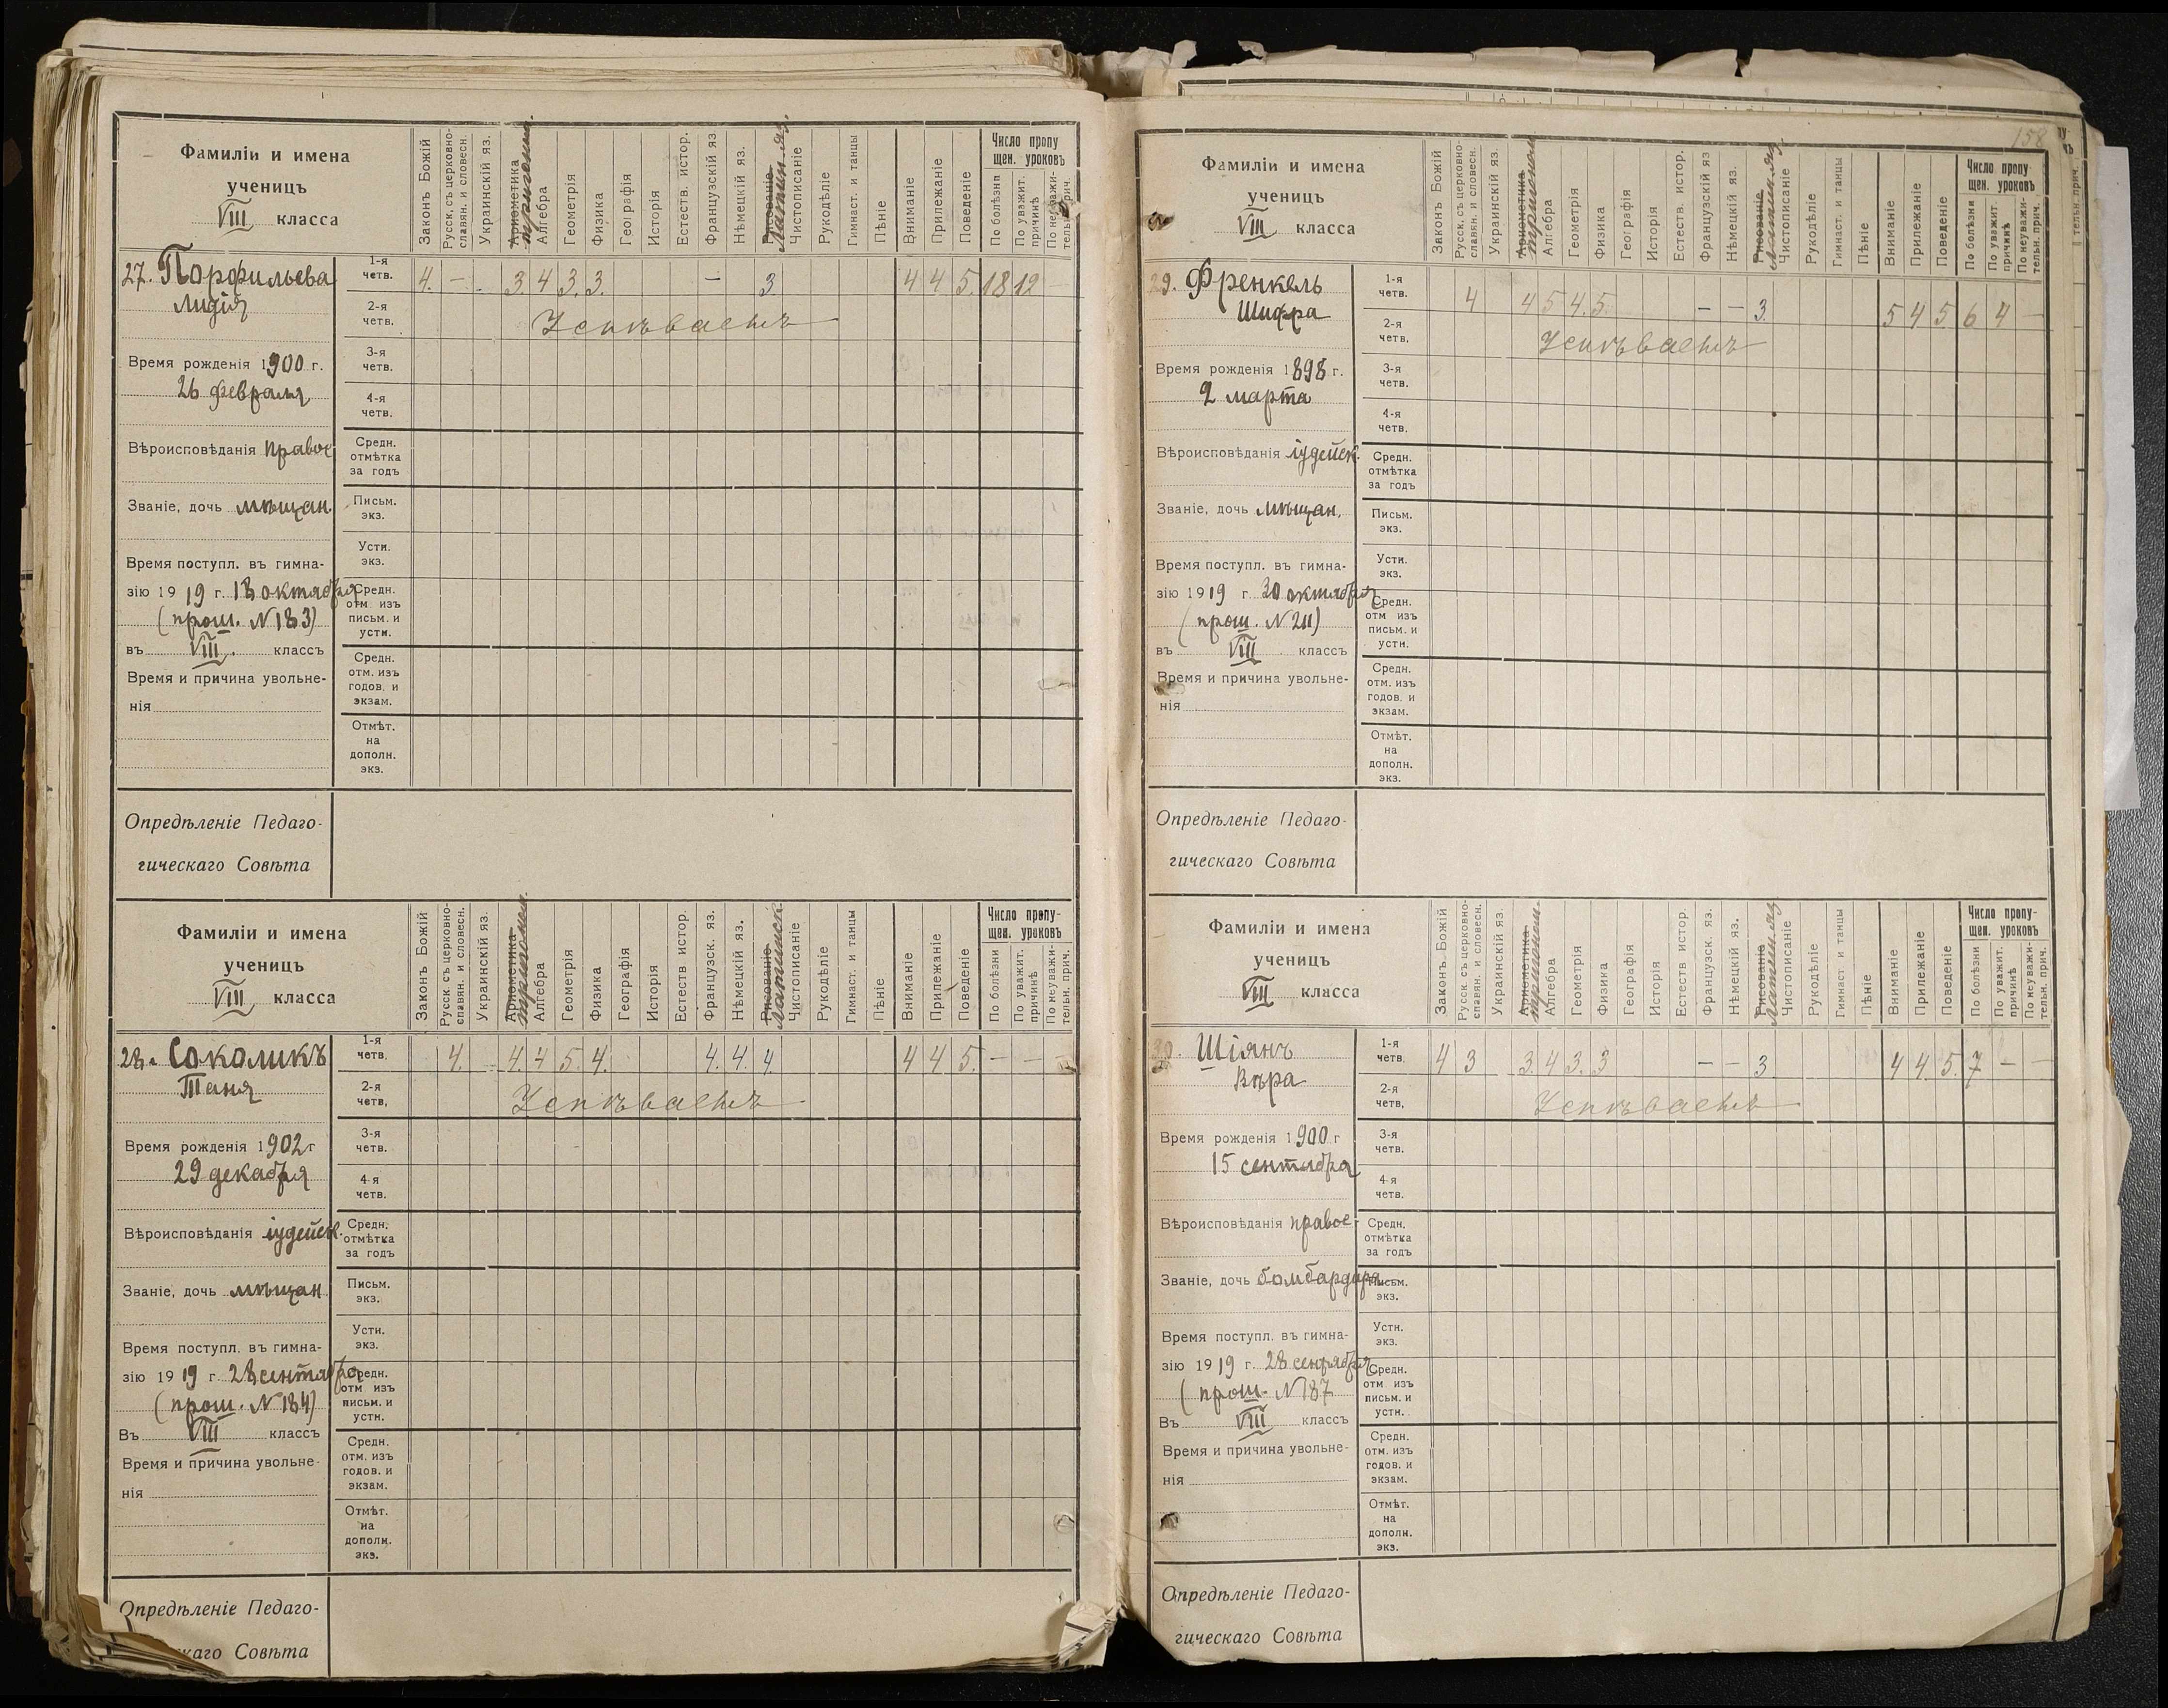 Фамиліи и имена
ученицъ
VIII класса
Законъ Божій
Русск. съ церковно-
славян. и словесн.
Украинскій яз.
Ариѳметика
Алгебра
Геометрія
Физика
Географія
Исторія
Естеств. истор.
Французскій яз
Нѣмецкій яз.
Рисованіе
Латин. яз.
Чистописаніе
Рукодѣліе
Гимнаст. и танцы
Пѣніе
Вниманіе
Прилежаніе
Поведеніе
Число пропу
щен. уроковъ
По болѣзни
По уважит.
причинѣ
По неуважи-
тельн. прич.
27. Порфильева
Лидія
1-я
четв.
4. – 3 4 3. 3. – 3 4 4 5. 18 12 –
2-я
четв.
Успѣваетъ
Время рожденія 1900 г.
26 февраля
3-я
четв.
4-я
четв.
Вѣроисповѣданія правос
Средн.
отмѣтка
за годъ
Званіе, дочь мѣщан.
Письм.
экз.
Устн.
экз.
Время поступл. въ гимна-
зію 1919 г. 18 октября
(прош. N 183)
въ VIII. классъ
Средн.
отм изъ
письм. и
устн.
Время и причина увольне-
нія
Средн.
отм. изъ
годов. и
экзам.
Отмѣт.
на
дополн.
экз.
Опредѣленіе Педаго-
гическаго Совѣта
Фамиліи и имена
ученицъ
VIII класса
Законъ Божій
Русск. съ церковно-
славян. и словесн.
Украинскій яз.
Ариѳметика
Алгебра
Геометрія
Физика
Географія
Исторія
Естеств истор.
Французск. яз.
Нѣмецкій яз.
Рисованіе
Латинск.
Чистописаніе
Рукодѣліе
Гимнаст. и танцы
Пѣніе
Вниманіе
Прилежаніе
Поведеніе
Число пропу-
щен. уроковъ
По болѣзни
По уважит.
причинѣ
По неуважи-
тельн. прич.
28. Соколикъ
Таня
1-я
четв.
4. 4. 4 5 4. 4. 4. 4. 4 4 5. – – –
2-я
четв.
Успѣваетъ
Время рожденія 1902 г
29 декабря
3-я
четв.
4-я
четв.
Вѣроисповѣданія іудейск.
Средн.
отмѣтка
за годъ
Званіе, дочь мѣщан
Письм.
экз.
Устн.
экз.
Время поступл. въ гимна-
зію 1919 г. 28 сентября
(прош. N 184)
Въ VIII классъ
Средн.
отм изъ
письм. и
устн.
Время и причина увольне-
нія
Средн.
отм. изъ
годов. и
экзам.
Отмѣт.
на
дополн.
экз.
Опредѣленіе Педаго-
каго Совѣта
158
Фамиліи и имена
ученицъ
VIII класса
Законъ Божій
Русск. съ церковно-
славян. и словесн.
Украинскій яз.
Ариѳметика
Алгебра
Геометрія
Физика
Географія
Исторія
Естеств. истор.
Французскій яз
Нѣмецкій яз.
Рисованіе
Латин. яз
Чистописаніе
Рукодѣліе
Гимнаст. и танцы
Пѣніе
Вниманіе
Прилежаніе
Поведеніе
Число пропу-
щен. уроковъ
По болѣзни
По уважит.
причинѣ
По неуважи-
тельн. прич.
29. Френкель
Шифра
1-я
четв.
4 4 5 4. 5. – – 3. 5 4 5 6 4 –
2-я
четв.
Успѣваетъ
Время рожденія 1898 г.
2 марта
3-я
четв.
4-я
четв.
Вѣроисповѣданія іудейск.
Средн.
отмѣтка
за годъ
Званіе, дочь мѣщан.
Письм.
экз.
Устн.
экз.
Время поступл. въ гимна-
зію 1919 г 30 октября
(прош. N 211)
въ VIII классъ
Средн.
отм изъ
письм. и
устн.
Время и причина увольне-
нія
Средн.
отм. изъ
годов. и
экзам.
Отмѣт.
на
дополн.
экз.
Опредѣленіе Педаго-
гическаго Совѣта
Фамиліи и имена
ученицъ
VIII класса
Законъ Божій
Русск. съ церковно-
славян. и словесн.
Украинскій яз.
Ариѳметика
Алгебра
Геометрія
Физика
Географія
Исторія
Естеств истор.
Французск. яз.
Нѣмецкій яз.
Рисованіе
Латин. яз
Чистописаніе
Рукодѣліе
Гимнаст и танцы
Пѣніе
Вниманіе
Прилежаніе
Поведеніе
Число пропу-
щен. уроковъ
По болѣзни
По уважит.
причинѣ
По неуважи-
тельн. прич.
30. Шіянъ
Вѣра
1-я
четв.
4 3 3. 4 3. 3 – – 3 4 4 5. 7 – –
2-я
четв,
Успѣваетъ
Время рожденія 1900 г
15 сентября
3-я
четв.
4-я
четв.
Вѣроисповѣданія правос
Средн.
отмѣтка
за годъ
Званіе, дочь бомбардира
Письм.
экз.
Устн.
экз.
Время поступл. въ гимна-
зію 1919 г. 28 сентября
(прош. N 187
Въ VIII классъ
Средн.
отм. изъ
письм. и
устн.
Время и причина увольне-
нія
Средн.
отм. изъ
годов. и
экзам.
Отмѣт.
на
дополн.
экз.
Опредѣленіе Педаго-
гическаго Совѣта